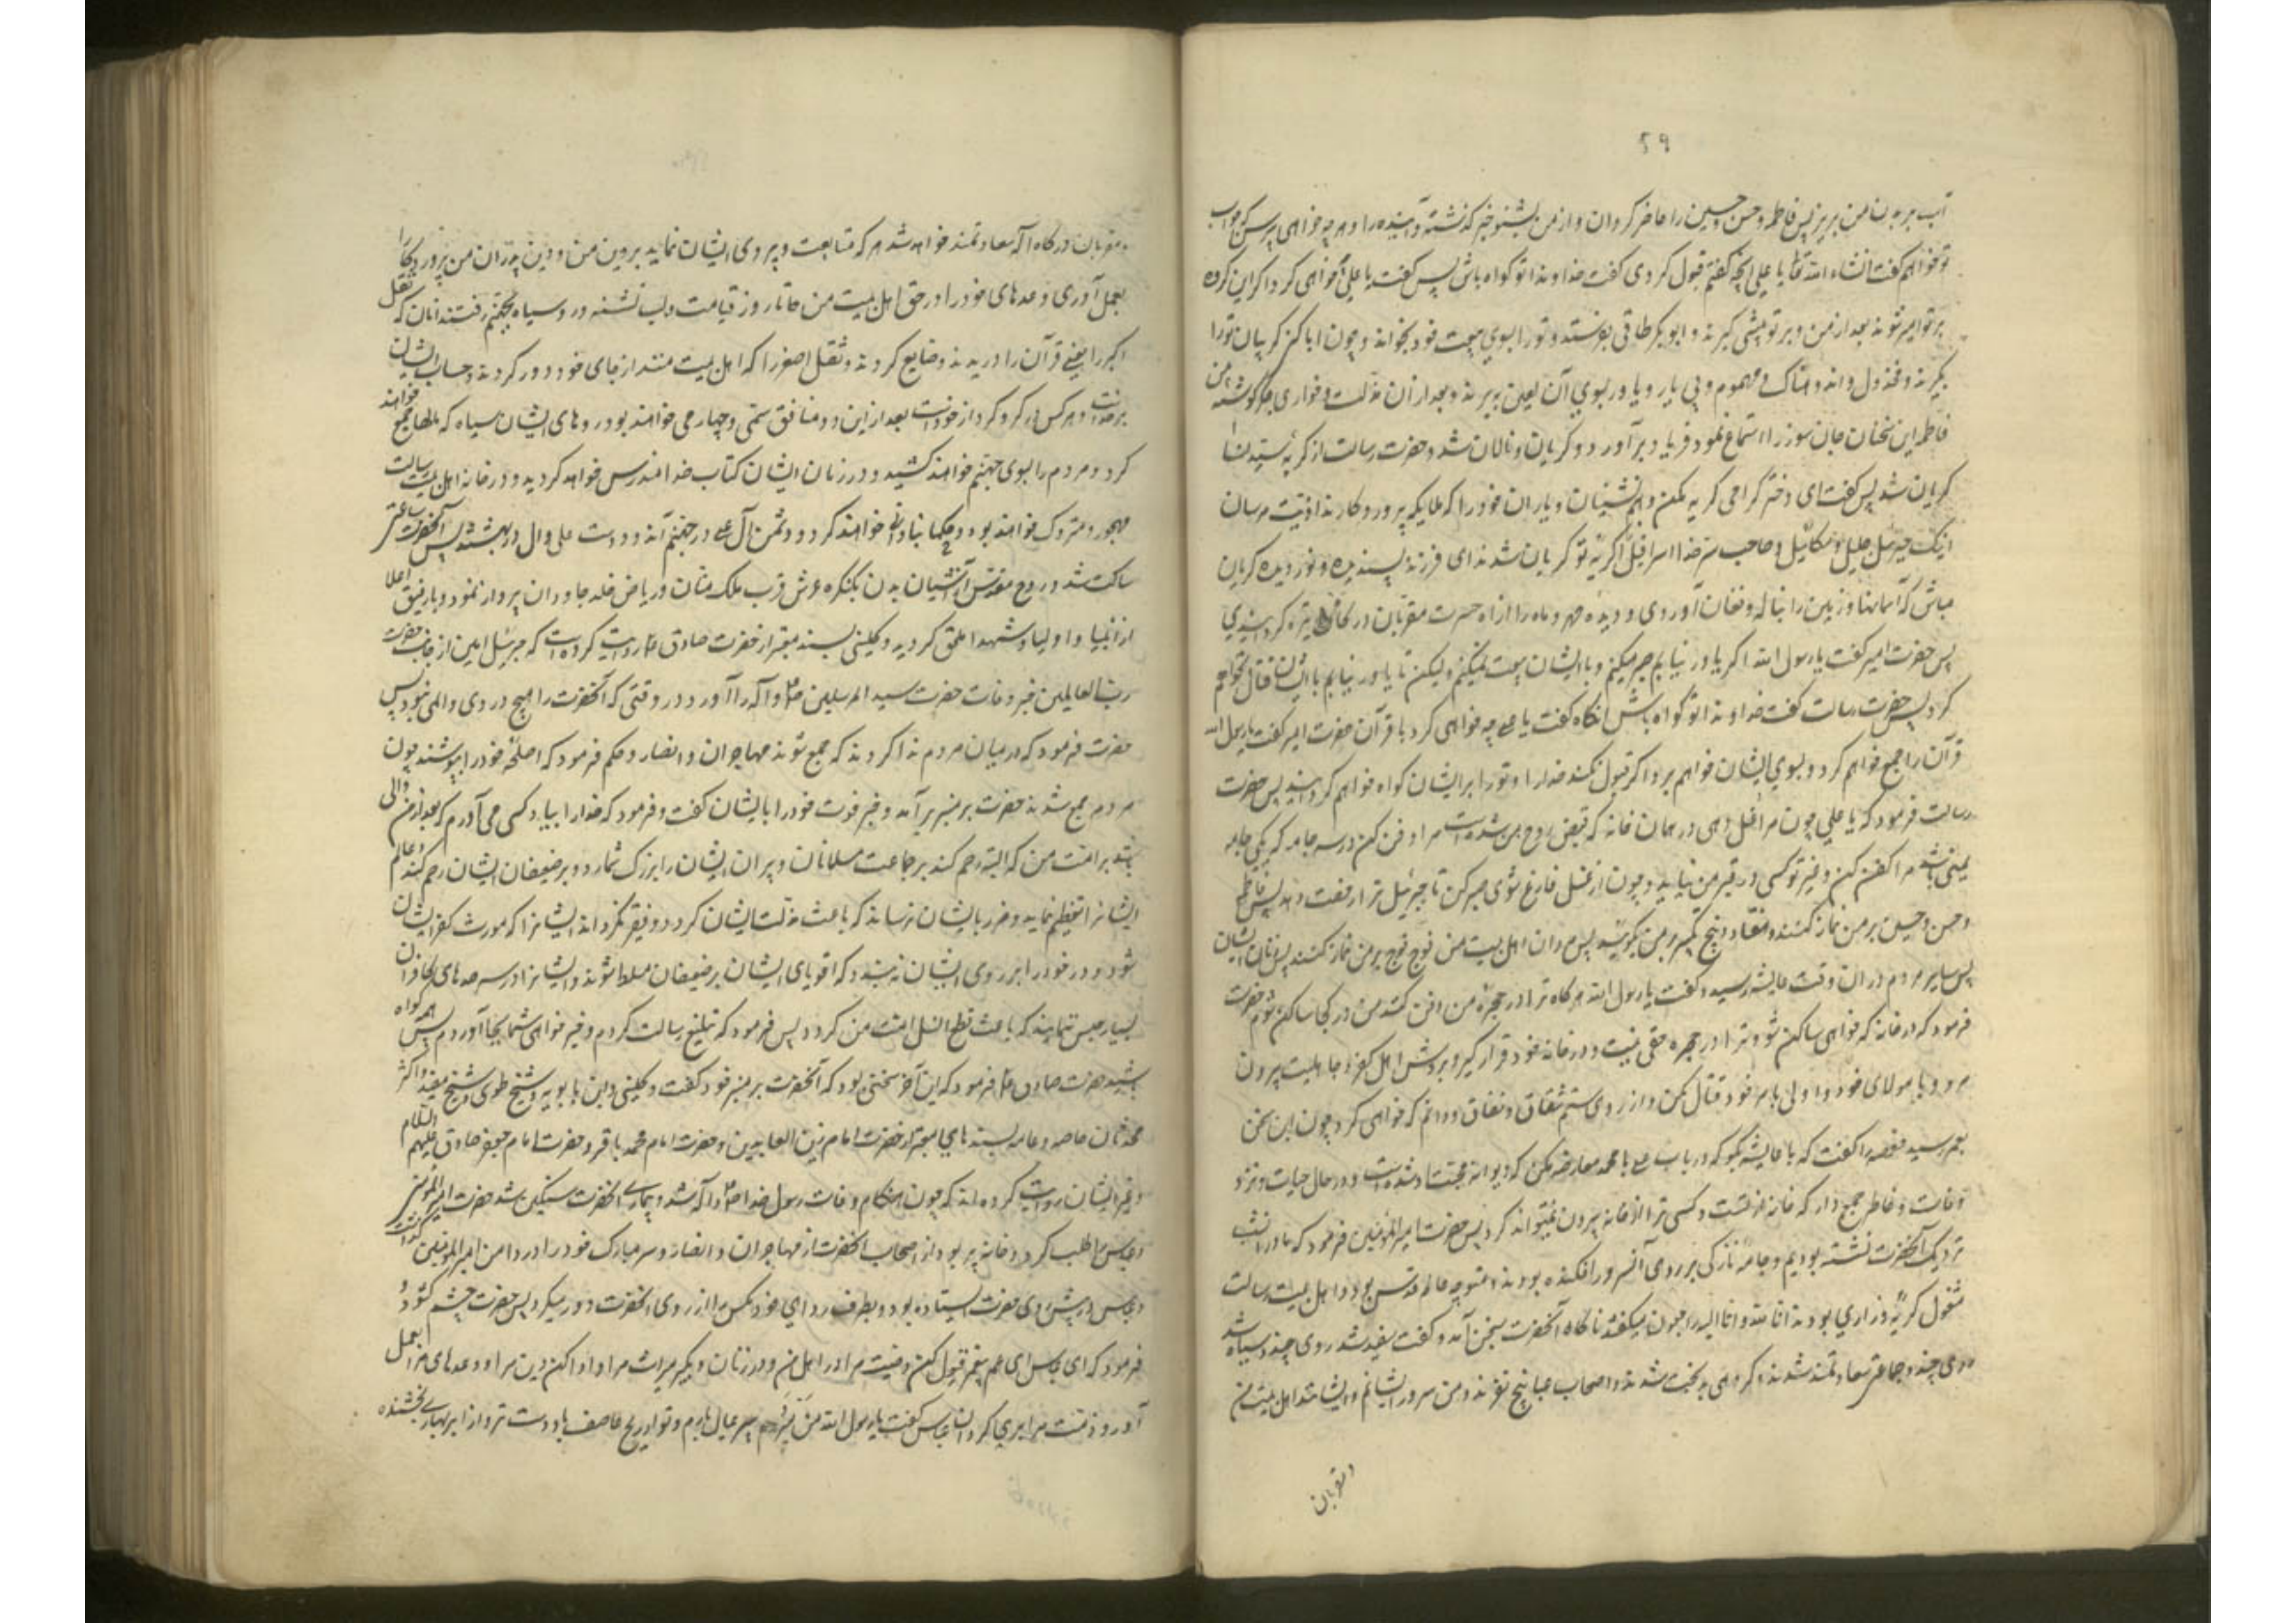 ۵۹
آب بر بدن من بریز پس فاطمه و حسن و حسین را حاضر گردان و از من بشنو خبر گذشته و آینده را و هر چه خواهی بپرس که جواب
تو خواهم گفت انشاء الله تعالی یا علی آنچه گفتم قبول کردی گفت خداوندا تو گواه باش پس گفت یا علی چه خواهی کرد اگر این گروه
بر تو امیر شوند بعد از من و بر تو پیشی گیرند و ابوبکر طاقی بفرستد و تو را بسوی بیعت خود بخواند و چون ابا کنی گریبان تو را
بگیرند و مخذول و اندوهناک و مهموم و بی یار و یاور بسوی آن لعین ببرند و بعد از آن مذلت و خواری بجگر گوشه من
فاطمه این سخنان جان سوز را استماع نمود فریاد برآورد و گریان و نالان شد و حضرت رسالت از گریه سیده نسا
گریان شد پس گفت ای دختر گرامی گریه مکن و همنشینان و یاران خود را که ملایکه پروردگارند اذیت مرسان
اینک جبرئیل جلیل و میکائیل و صاحب سر خدا اسرافیل از گریه تو گریان شدند ای فرزند پسندیده و نور دیده گریان
مباش که آسمانها و زمین را بناله و فغان آوردی و دیده مهر و ماه را از راه حسرت مقربان درگاه تیره گردانیدی
پس حضرت امیر گفت یا رسول الله اگر یاور نیابم صبر میکنم و با ایشان بیعت نمیکنم ولیکن تا یاور نیابم با ایشان قتال نخواهم
کرد پس حضرت رسالت گفت خداوندا تو گواه باش آنگاه گفت یا علی چه خواهی کرد با قرآن حضرت امیر گفت یا رسول الله
قرآن را جمع خواهم کرد و بسوی ایشان خواهم برد اگر قبول نکنند خدا را و تو را بر ایشان گواه خواهم گردانید پس حضرت
رسالت فرمود که یا علی چون مرا غسل دهی در همان خانه که قبض روح من شده است مرا دفن کن و در سه جامه که یکی جامه
یمنی باشد مرا کفن کن و غیر تو کسی در قبر من نیاید و چون از غسل فارغ شوی صبر کن تا جبرئیل ترا رخصت دهد پس فاطمه
و حسن و حسین بر من نماز کنند و هفتاد و پنج تکبیر بر من بگویند پس مردان اهل بیت من فوج فوج بر من نماز کنند پس زنان ایشان
پس سایر مردم در آن وقت عایشه رسید و گفت یا رسول الله هر گاه ترا در حجره من دفن کنند من در کجا ساکن شوم حضرت
فرمود که در خانه که خواهی ساکن شو و ترا در حجره حقی نیست و در خانه خود قرار گیر و بروش اهل کفر و جاهلیت بیرون
مرو و با مولای خود و اولی بامر خود قتال مکن و از روی ستم و شقاق و نفاق و دانم که خواهی کرد چون این سخن
بعمر رسید حفصه را گفت که با عایشه بگو که در باب علی با محمد معارضه مکن که دیوانه محبت او شده است و در حال حیات و نزد
وفات و خاطر جمع دار که خانه از تست و کسی ترا از خانه بیرون نمیتواند کرد پس حضرت امیرالمؤمنین فرمود که ما در آن شب
نزدیک آنحضرت نشسته بودیم و جامه نازکی بر روی آنسرور افکنده بودند و متوجه عالم قدس بود و اهل بیت رسالت
مشغول گریه و زاری بودند انا لله و انا الیه راجعون میگفتند ناگاه آنحضرت بسخن آمد و گفت سفید شد روی چند و سیاه شد
روی چند و جماعتی سعادتمند شدند و گروهی بدبخت شدند و اصحاب عبا پنج نفرند و من سرور ایشانم و ایشانند اهل بیت من
و مقربان
و مقربان درگاه اله سعادتمند خواهد شد هر که متابعت و پیروی ایشان نماید بر دین من و دین پدران من پروردگارا
بعمل آوری وعدهای خود را در حق اهل بیت من تا روز قیامت و لب تشنه و رو سیاه بجهنم رفتند آنان که ثقل
اکبر را یعنی قرآن را دریدند و ضایع کردند و ثقل اصغر را که اهل بیت منند از جای خود دور کردند و حساب ایشان
بر خداست و هر کس در گرو کردار خود است بعد از این دو منافق سیمی و چهارمی خواهند بود روهای ایشان سیاه که مالها جمع خواهند
کرد و مردم را بسوی جهنم خواهند کشید و در زمان ایشان کتاب خدا مندرس خواهد گردید و در خانه اهل بیت رسالت
مهجور و متروک خواهند بود و حکمها بناحق خواهند کرد و دشمن آل علی در جهنم اند و دوست علی و آل او در بهشتند پس آنحضرت ساعتی
ساکت شد و روح مقدس آشیان بدن بکنگره عرش قرب ملک منان و ریاض خلد جاودان پرواز نمود و با رفیق اعلا
از انبیا و اولیا و شهدا ملحق گردید و کلینی بسند معتبر از حضرت صادق روایت کرده است که جبرئیل امین از جانب حضرت
رب العالمین خبر وفات حضرت سید المرسلین ص و آله را آورد در وقتی که آنحضرت را هیچ دردی و المی نبود پس
حضرت فرمود که در میان مردم ندا کردند که جمع شوند مهاجران و انصار و حکم فرمود که اسلحه خود را بپوشند چون
مردم جمع شدند حضرت بر منبر برآمد و خبر فوت خود را با ایشان گفت و فرمود که خدا را بیاد کسی می آورم که بعد از من والی
شود بر امت من که البته رحم کند بر جماعت مسلمانان و پیران ایشان را بزرگ شمارد و بر ضعیفان ایشان رحم کند و عالم
ایشانرا تعظیم نماید و ضرر بایشان نرساند که باعث مذلت ایشان گردد و فقیر نگرداند ایشانرا که مورث کفر ایشان
شود و در خود را بر روی ایشان نبندد که اقویای ایشان بر ضعیفان مسلط شوند و ایشانرا در سرحدهای کافران
بسیار حبس ننمایند که باعث قطع نسل امت من گردد پس فرمود که تبلیغ رسالت کردم و خیر خواهی شما بجا آوردم پس همه گواه
باشید حضرت صادق فرمود که این آخر سخنی بود که آنحضرت بر منبر خود گفت و کلینی و ابن بابویه و شیخ طوسی و شیخ مفید و اکثر
محدثان خاصه و عامه بسندهای معتبر از حضرت امام زین العابدین و حضرت امام محمد باقر و حضرت امام جعفر صادق علیهم السلام
و غیر ایشان روایت کرده اند که چون هنگام وفات رسول خدا ص و آله شد و بیماری آنحضرت سنگین شد حضرت امیرالمؤمنین
و عباس را طلب کرد و خانه پر بود از اصحاب آنحضرت از مهاجران و انصار و سر مبارک خود را در دامن امیرالمؤمنین گذاشت
و عباس در پیش روی حضرت ایستاده بود و بطرف ردای خود مگس را از روی آنحضرت دور میکرد پس حضرت چشم گشود و
فرمود که ای عباس ای عم پیغمبر قبول کن وصیت مرا در اهل من و در زنان و بگیر میراث مرا و ادا کن دین مرا و وعدهای مرا بعمل
آور و ذمت مرا بری گردان عباس گفت یا رسول الله من پیر مردم و عیال بارم و تو از ریح عاصف باد دست تر و از ابر بهاری بخشنده